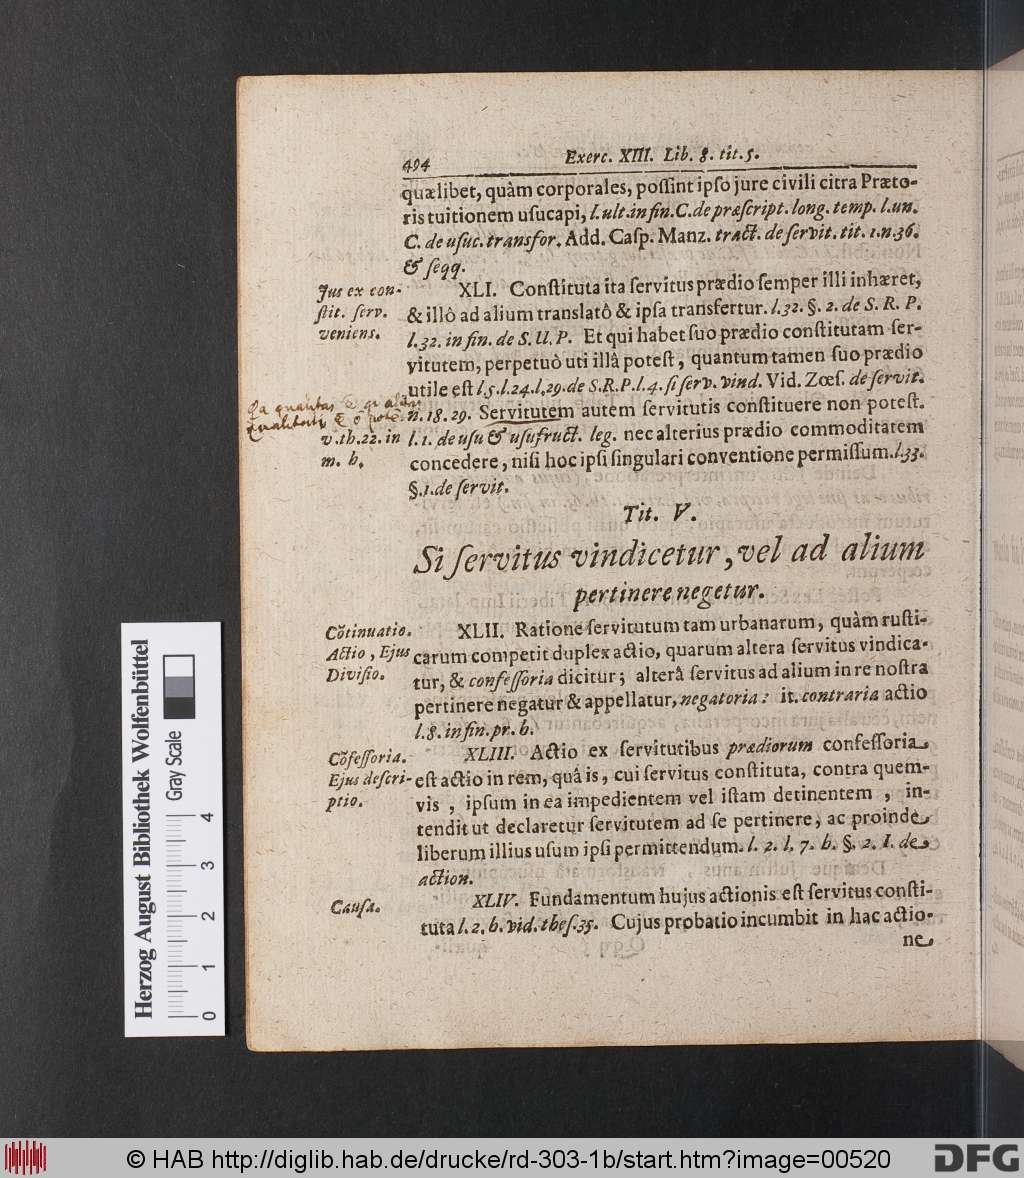 494 Exerc. XIII. Lib. 8. tit. 5.
quælibet, quàm corporales, poſſint ipſo jure civili citra Præto-
ris tuitionem uſucapi, l. ult. in fin. C. de præſcript. long. temp. l. un.
C. de uſuc. transfor. Add. Caſp. Manz. tract. de ſervit. tit. 1. n. 36.
& ſeqq.
Jus ex con-
ſtit. ſerv.
veniens.
XLI. Conſtituta ita ſervitus prædio ſemper illi inhæret,
& illô ad alium translatô & ipſa transfertur. l. 32. §. 2. de S. R. P.
l. 32. in fin. de S. U. P. Et qui habet ſuo prædio conſtitutam ſer-
vitutem, perpetuò uti illâ poteſt, quantum tamen ſuo prædio
utile eſt l. 5. l. 24. l. 29. de S. R. P. l. 4. ſi ſerv. vind. Vid. Zoeſ. de ſervit.
n. 18. 29. Servitutem autem ſervitutis conſtituere non poteſt.
l. 1. de uſu & uſufruct. leg. nec alterius prædio commoditatem
concedere, niſi hoc ipſi ſingulari conventione permiſſum. l. 33.
§. 1. de ſervit.
qualitas
v. th. 22. in
m. h.
Tit. V.
Si ſervitus vindicetur, vel ad alium
pertinere negetur.
Cõtinuatio.
Actio, Ejus
Diviſio.
XLII. Ratione ſervitutum tam urbanarum, quàm ruſti-
carum competit duplex actio, quarum altera ſervitus vindica-
tur, & confeſſoria dicitur; alterâ ſervitus ad alium in re noſtra
pertinere negatur & appellatur, negatoria: it. contraria actio
l. 8. in fin. pr. h.
Cõfeſſoria.
Ejus deſcri-
ptio.
XLIII. Actio ex ſervitutibus prædiorum confeſſoria
eſt actio in rem, quâ is, cui ſervitus conſtituta, contra quem-
vis, ipſum in ea impedientem vel iſtam detinentem, in-
tendit ut declaretur ſervitutem ad ſe pertinere, ac proinde
liberum illius uſum ipſi permittendum. l. 2. l. 7. h. §. 2. I. de
action.
Cauſa.
XLIV. Fundamentum hujus actionis eſt ſervitus conſti-
tuta l. 2. h. vid. theſ. 35. Cujus probatio incumbit in hac actio-
ne
Herzog August Bibliothek Wolfenbüttel
Gray Scale
0 1 2 3 4
© HAB http://diglib.hab.de/drucke/rd-303-1b/start.htm?image=00520
DFG